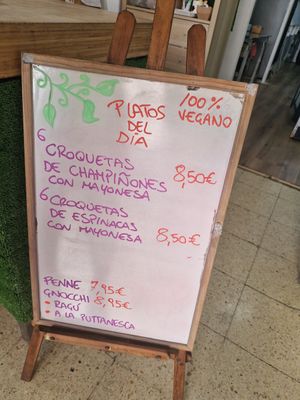 PLATOS
DEL
DÍA
100%
VEGANO
6
CROQUETAS
DE CHAMPIÑONES 8,50€
CON MAYONESA
6 CROQUETAS
DE ESPINACAS
CON MAYONESA 8,50€
PENNE 7,95€
GNOCCHI 8,95€
• RAGÚ
• A LA PUTTANESCA